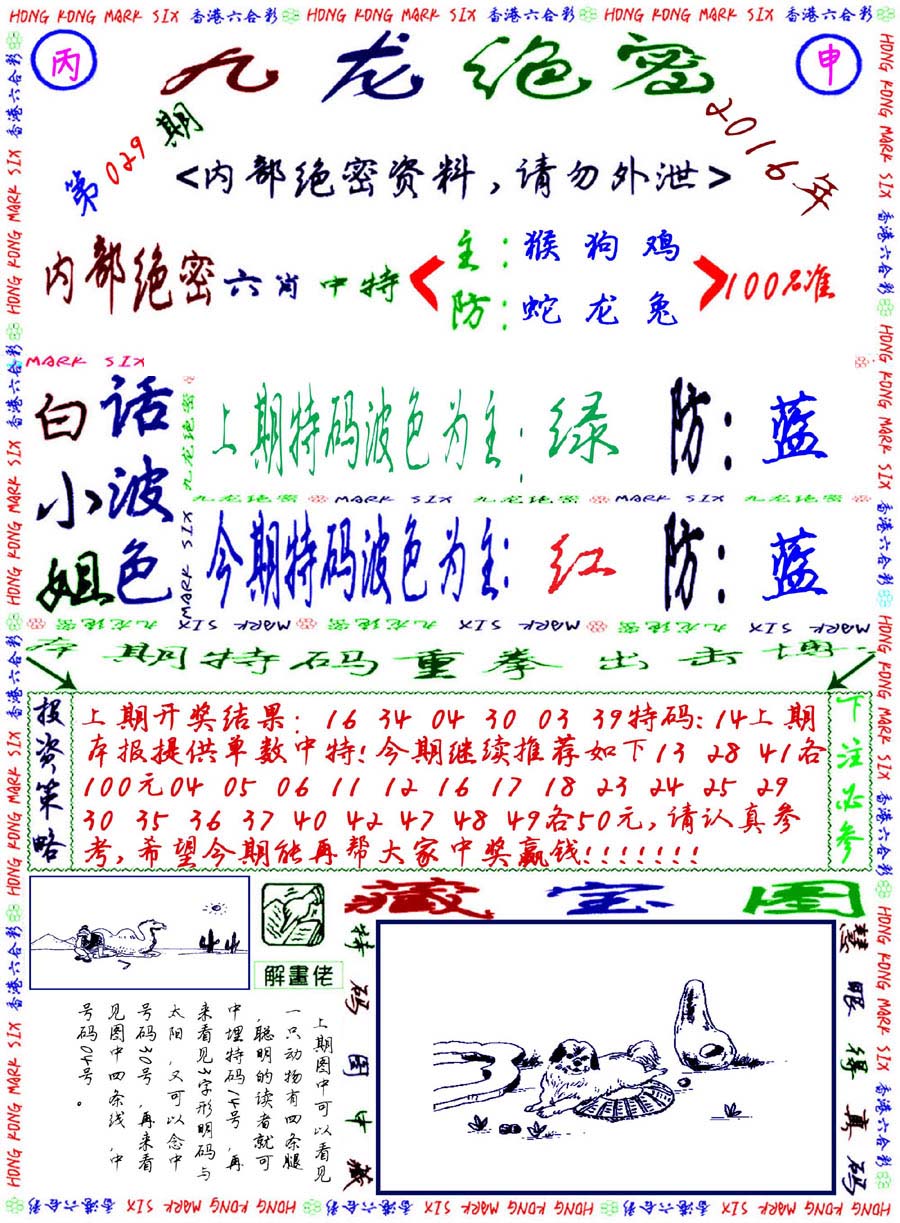 HONG KONG MARK SIX 香港六合彩 HONG KONG MARK SIX 香港六合彩 HONG KONG MARK SIX 香港六合彩
丙
九龙绝密
申
第029期
2016年
<内部绝密资料,请勿外泄>
内部绝密六肖中特
主:猴狗鸡
防:蛇龙兔
100%准
MARK SIX
白话小姐
波色
九龙绝密
上期特码波色为主:绿 防:蓝
九龙绝密 MARK SIX 九龙绝密 MARK SIX 九龙绝密
MARK SIX
今期特码波色为主:红 防:蓝
MARK SIX 九龙绝密 MARK SIX 九龙绝密 MARK SIX 九龙绝密
本期特码重拳出击博
投资策略
上期开奖结果: 16 34 04 30 03 39特码:14上期
本报提供单数中特!今期继续推荐如下13 28 41各
100元04 05 06 11 12 16 17 18 23 24 25 29
30 35 36 37 40 42 47 48 49各50元,请认真参
考,希望今期能再帮大家中奖赢钱!!!!!!!
下注必参
解畫佬
藏宝图
特码图中藏
慧眼缘真码
上期图中可以看见
一只动物有四条腿
,聪明的读者就可
中埋特码14号,再
来看见3字形明码与
太阳,又可以念中
号码30号,再来看
见图中四条线,中
号码04号。
HONG KONG MARK SIX 香港六合彩 HONG KONG MARK SIX 香港六合彩 HONG KONG MARK SIX 香港六合彩